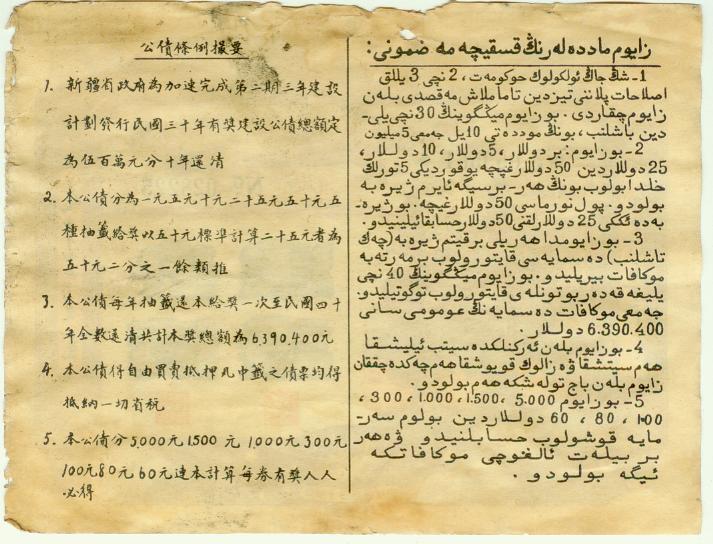 公債條例撮要
1. 新疆省政府為加速完成第二期三年建設
計劃發行民國三十年有獎建設公債總額定
為伍百萬元分十年還清
2. 本公債分為一元五元十元二十五元五十元五
種抽籤給獎以五十元標準計算二十五元者為
五十元二分之一餘類推
3. 本公債每年抽籤還本給獎一次至民國四十
年全數還清共計本獎總額為6,390,400元
4. 本公債得自由買賣抵押凡中籤之債票均得
抵納一切省稅
5. 本公債分5,000元1,500元1,000元300元
100元80元60元連本計算每券有獎人人
必得
زايوم ماددە لەرنىڭ قسقىچە مە ضمونى:
1- شڭ جاڭ ئولكولوك حوكومەت، 2 نچى 3 يللق
اصلاحات پلاننى تيزدين تاماملاش مەقصدى بلەن
زايوم چقاردى. بو زايوم مينگوينڭ 30 نچى يلى-
دين باشلنب، بونڭ موددە تى 10 يل جەمعى 5 ميليون
2- بو زايوم: بر دوللار، 5 دوللار، 10 دوللار،
25 دوللاردين 50 دوللارغيچە يوقوردىكى 5 تورلك
خلدا بولوب بونڭ هەر-برسيگە ئايرم ژيرە بە
بولودو. پول نورماسى 50 دوللارغيچە. بو ژيرە-
بە دە ئككى 25 دوللارلقنى 50 دوللار حسابقا ئيلينيدو.
3- بو زايومدا هەر يلى بر قيتم ژيرە بە (چەك
تاشلنب) دە سمايە سى قايتورولوب بر مەرتە بە
موكافات بيريليدو. بو زايوم مينگوينڭ 40 نچى
يليغە قە دەر بوتونلە ى قايتورولوب توگوتيليدو.
جەمعى موكافات دە سمايە نڭ عومومى سانى
6.390.400 دوللار.
4- بو زايوم بلەن ئەركنلكدە سيتب ئيليشقا
هەم سيتشقا ۋە زالوك قويوشقا هەم چەكدە چققان
زايوم بلەن باج تولە شكە هەم بولودو.
5- بو زايوم 5.000، 1.500، 1.000، 300،
100، 80، 60 دوللاردين بولوم سەر-
مايە قوشولوب حسابلنيدو ۋە هەر
بر بيلەت ئالغوچى موكافاتكە
ئيگە بولودو.